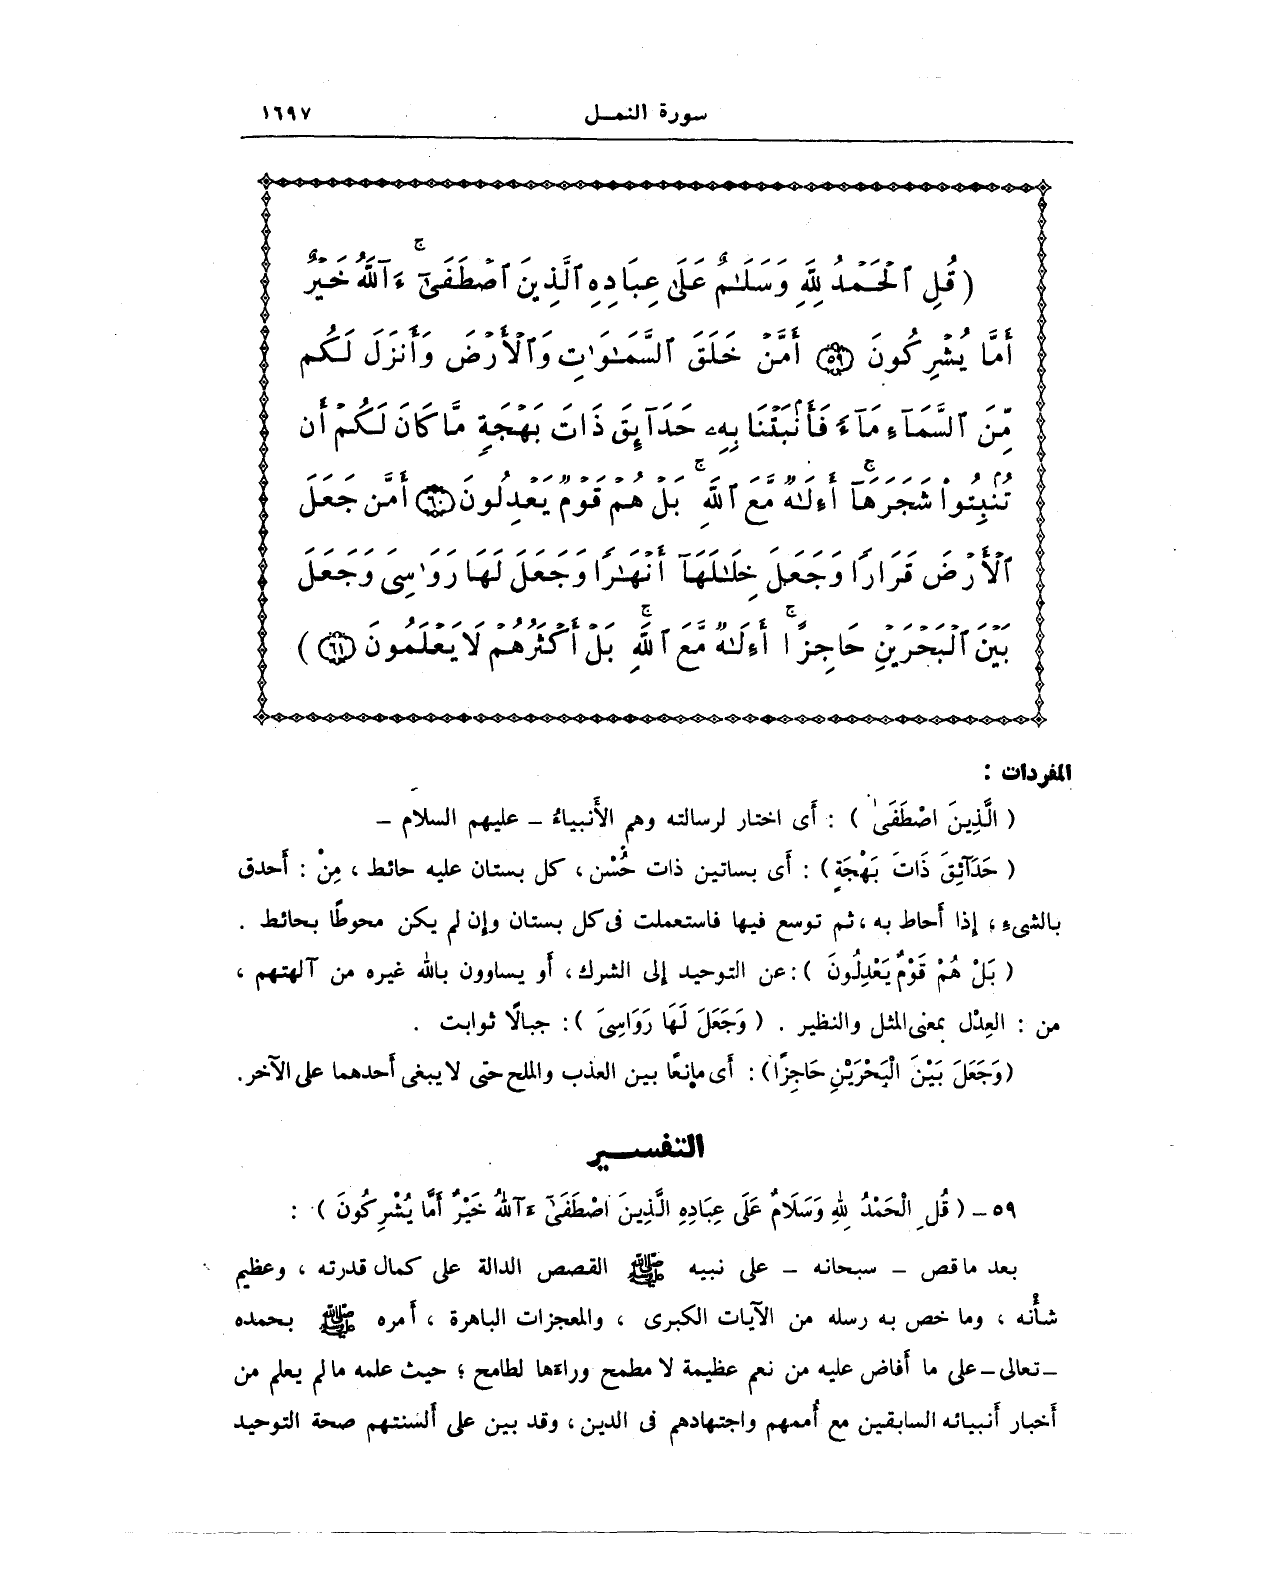 سورة النمـل ١٦٩٧
(قُلِ ٱلْحَمْدُ لِلَّهِ وَسَلَٰمٌ عَلَىٰ عِبَادِهِ ٱلَّذِينَ ٱصْطَفَىٰٓ ۚ ءَآللَّهُ خَيْرٌ
أَمَّا يُشْرِكُونَ ۝٥٩ أَمَّنْ خَلَقَ ٱلسَّمَٰوَٰتِ وَٱلْأَرْضَ وَأَنزَلَ لَكُم
مِّنَ ٱلسَّمَآءِ مَآءً فَأَنۢبَتْنَا بِهِۦ حَدَآئِقَ ذَاتَ بَهْجَةٍ مَّا كَانَ لَكُمْ أَن
تُنۢبِتُوا۟ شَجَرَهَآ ۗ أَءِلَٰهٌ مَّعَ ٱللَّهِ ۚ بَلْ هُمْ قَوْمٌ يَعْدِلُونَ ۝٦٠ أَمَّن جَعَلَ
ٱلْأَرْضَ قَرَارًا وَجَعَلَ خِلَٰلَهَآ أَنْهَٰرًا وَجَعَلَ لَهَا رَوَٰسِىَ وَجَعَلَ
بَيْنَ ٱلْبَحْرَيْنِ حَاجِزًا ۗ أَءِلَٰهٌ مَّعَ ٱللَّهِ ۚ بَلْ أَكْثَرُهُمْ لَا يَعْلَمُونَ ۝٦١)
المفردات :
( الَّذِينَ اصْطَفَىٰ ) : أَى اختار لرسالته وهم الأَنبياءُ ــ عليهم السلام ــ
( حَدَآئِقَ ذَاتَ بَهْجَةٍ ) : أَى بساتين ذات حُسْن ، كل بستان عليه حائط ، مِنْ : أَحدق
بالشىءِ ، إِذا أَحاط به ، ثم توسع فيها فاستعملت فى كل بستان وإن لم يكن محوطًا بحائط .
( بَلْ هُمْ قَوْمٌ يَعْدِلُونَ ) : عن التوحيد إلى الشرك ، أَو يساوون بالله غيره من آلهتهم ،
من : العِدْل بمعنى المثل والنظير . ( وَجَعَلَ لَهَا رَوَاسِىَ ) : جبالًا ثوابت .
( وَجَعَلَ بَيْنَ الْبَحْرَيْنِ حَاجِزًا ) : أَى مانعًا بين العذب والملح حتى لا يبغى أَحدهما على الآخر .
التفسـير
٥٩ ــ ( قُلِ الْحَمْدُ لِلهِ وَسَلَامٌ عَلَى عِبَادِهِ الَّذِينَ اصْطَفَىٰٓ ءَآللهُ خَيْرٌ أَمَّا يُشْرِكُونَ ) :
بعد ما قص ــ سبحانه ــ على نبيه ﷺ القصص الدالة على كمال قدرته ، وعظيم
شأْنه ، وما خص به رسله من الآيات الكبرى ، والمعجزات الباهرة ، أَمره ﷺ بحمده
ــ تعالى ــ على ما أَفاض عليه من نعم عظيمة لا مطمح وراءَها لطامح ؛ حيث علمه ما لم يعلم من
أَخبار أَنبيائه السابقين مع أُممهم واجتهادهم فى الدين ، وقد بين على أَلسنتهم صحة التوحيد